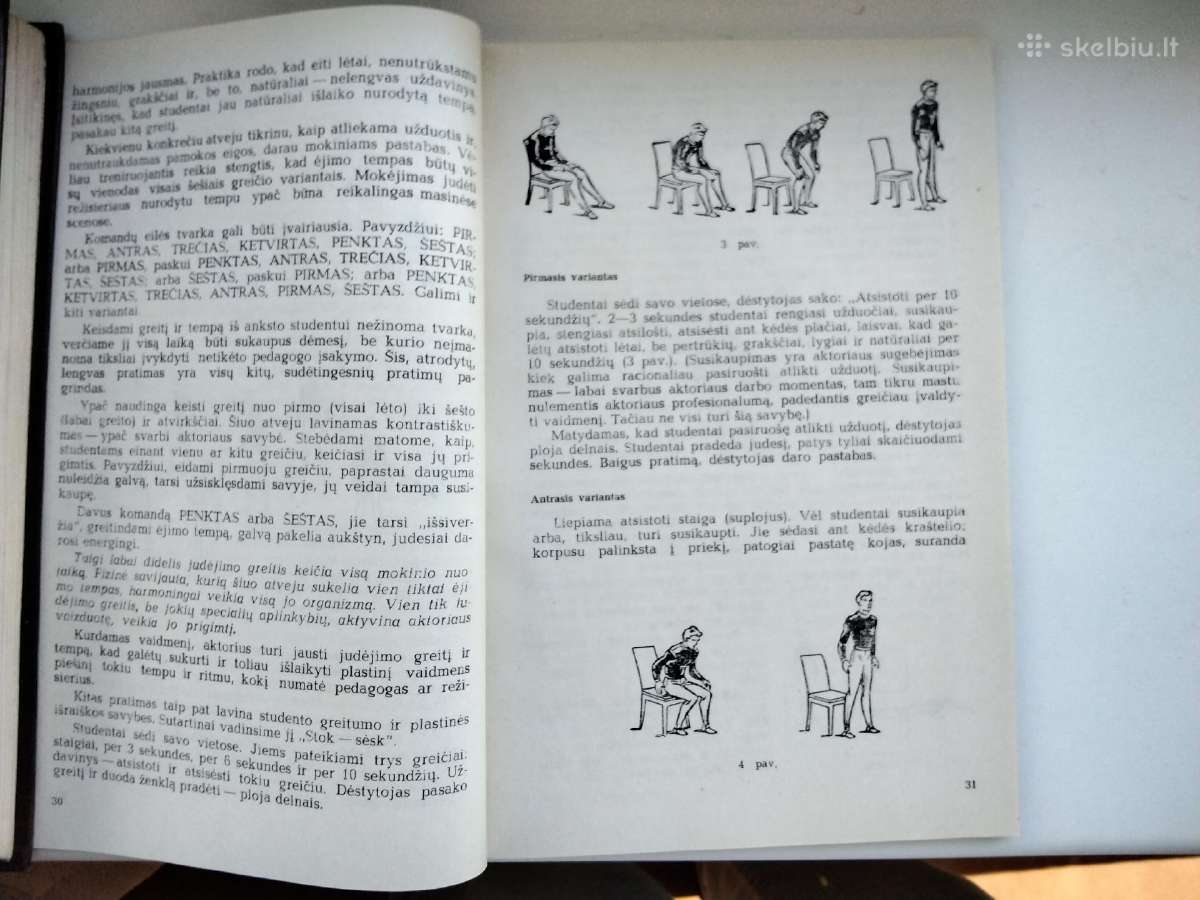 harmonijos jausmas. Praktika rodo, kad eiti lėtai, nenutrūkstamu
žingsniu, grakščiai ir, be to, natūraliai — nelengvas uždavinys.
Įsitikinęs, kad studentai jau natūraliai išlaiko nurodytą tempą,
pasakau kitą greitį.
Kiekvienu konkrečiu atveju tikrinu, kaip atliekama užduotis ir,
nenutraukdamas pamokos eigos, darau mokiniams pastabas. Vė-
liau treniruojantis reikia stengtis, kad ėjimo tempas būtų vi-
sų vienodas visais šešiais greičio variantais. Mokėjimas judėti
režisieriaus nurodytu tempu ypač būna reikalingas masinėse
scenose.
Komandų eilės tvarka gali būti įvairiausia. Pavyzdžiui: PIR-
MAS, ANTRAS, TREČIAS, KETVIRTAS, PENKTAS, ŠEŠTAS;
arba PIRMAS, paskui PENKTAS, ANTRAS, TREČIAS, KETVIR-
TAS, ŠEŠTAS; arba ŠEŠTAS, paskui PIRMAS; arba PENKTAS,
KETVIRTAS, TREČIAS, ANTRAS, PIRMAS, ŠEŠTAS. Galimi ir
kiti variantai.
Keisdami greitį ir tempą iš anksto studentui nežinoma tvarka,
verčiame jį visą laiką būti sukaupus dėmesį, be kurio neįma-
noma tiksliai įvykdyti netikėto pedagogo įsakymo. Šis, atrodytų,
lengvas pratimas yra visų kitų, sudėtingesnių pratimų pa-
grindas.
Ypač naudinga keisti greitį nuo pirmo (visai lėto) iki šešto
(labai greito) ir atvirkščiai. Šiuo atveju lavinamas kontrastišku-
mas — ypač svarbi aktoriaus savybė. Stebėdami matome, kaip,
studentams einant vienu ar kitu greičiu, keičiasi ir visa jų pri-
gimtis. Pavyzdžiui, eidami pirmuoju greičiu, paprastai dauguma
nuleidžia galvą, tarsi užsisklęsdami savyje, jų veidai tampa susi-
kaupę.
Davus komandą PENKTAS arba ŠEŠTAS, jie tarsi „išsiver-
žia“, greitindami ėjimo tempą, galvą pakelia aukštyn, judesiai da-
rosi energingi.
Taigi labai didelis judėjimo greitis keičia visą mokinio nuo
taiką. Fizinė savijauta, kurią šiuo atveju sukelia vien tiktai ėji
mo tempas, harmoningai veikia visą jo organizmą. Vien tik ju-
dėjimo greitis, be jokių specialių aplinkybių, aktyvina aktoriaus
vaizduotę, veikia jo prigimtį.
Kurdamas vaidmenį, aktorius turi jausti judėjimo greitį ir
tempą, kad galėtų sukurti ir toliau išlaikyti plastinį vaidmens
piešinį tokiu tempu ir ritmu, kokį numatė pedagogas ar reži-
sierius.
Kitas pratimas taip pat lavina studento greitumo ir plastinės
išraiškos savybes. Sutartinai vadinsime jį „Stok — sėsk“.
Studentai sėdi savo vietose. Jiems pateikiami trys greičiai:
staigiai, per 3 sekundes, per 6 sekundes ir per 10 sekundžių. Už-
davinys — atsistoti ir atsisėsti tokiu greičiu. Dėstytojas pasako
greitį ir duoda ženklą pradėti — ploja delnais.
30
skelbiu.lt
3 pav.
Pirmasis variantas
Studentai sėdi savo vietose, dėstytojas sako: „Atsistoti per 10
sekundžių“. 2—3 sekundes studentai rengiasi užduočiai, susikau-
pia, stengiasi atsilošti, atsisėsti ant kėdės plačiai, laisvai, kad ga-
lėtų atsistoti lėtai, be pertrūkių, grakščiai, lygiai ir natūraliai per
10 sekundžių (3 pav.). (Susikaupimas yra aktoriaus sugebėjimas
kiek galima racionaliau pasiruošti atlikti užduotį. Susikaupi-
mas — labai svarbus aktoriaus darbo momentas, tam tikru mastu
nulemiantis aktoriaus profesionalumą, padedantis greičiau įvaldy-
ti vaidmenį. Tačiau ne visi turi šią savybę.)
Matydamas, kad studentai pasiruošę atlikti užduotį, dėstytojas
ploja delnais. Studentai pradeda judesį, patys tyliai skaičiuodami
sekundes. Baigus pratimą, dėstytojas daro pastabas.
Antrasis variantas
Liepiama atsistoti staiga (suplojus). Vėl studentai susikaupia
arba, tiksliau, turi susikaupti. Jie sėdasi ant kėdės kraštelio,
korpusu palinksta į priekį, patogiai pastatę kojas, suranda
4 pav.
31